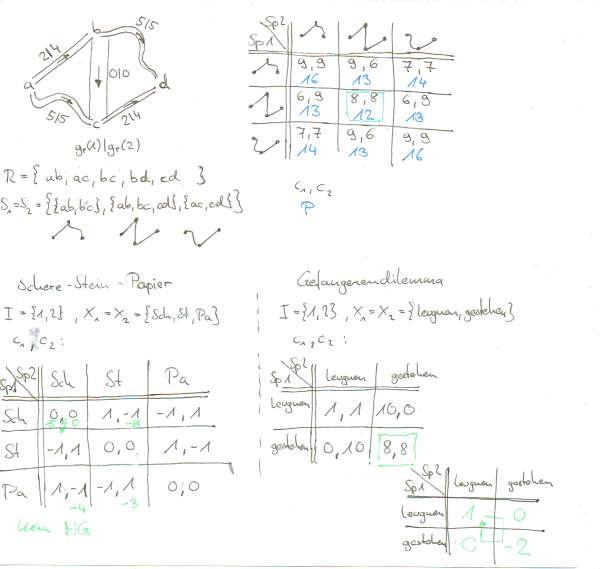 b
5/5
2/4
0/0
a
d
5/5
c
2/4
gr(1)|gr(2)
R = { ab, ac, bc, bd, cd }
S₁=S₂= {{ab,bc}, {ab,bc,cd}, {ac,cd}}
Sp2
Sp1
9,9 9,6 7,7
16 13 14
6,9 8,8 6,9
13 12 13
7,7 9,6 9,9
14 13 16
c₁, c₂
P
Schere-Stein-Papier
I = {1,2} , X₁=X₂={Sch,St,Pa}
c₁, c₂ :
Sp2
Sp1
Sch St Pa
Sch 0,0 1,-1 -1,1
St -1,1 0,0 1,-1
Pa 1,-1 -1,1 0,0
-4 -3
kein NG
Gefangenendilemma
I = {1,2} , X₁=X₂={leugnen,gestehen}
c₁, c₂ :
Sp2
Sp1
leugnen gestehen
leugnen 1,1 10,0
gestehen 0,10 8,8
Sp2
Sp1
leugnen gestehen
leugnen 1 0
gestehen 0 -2